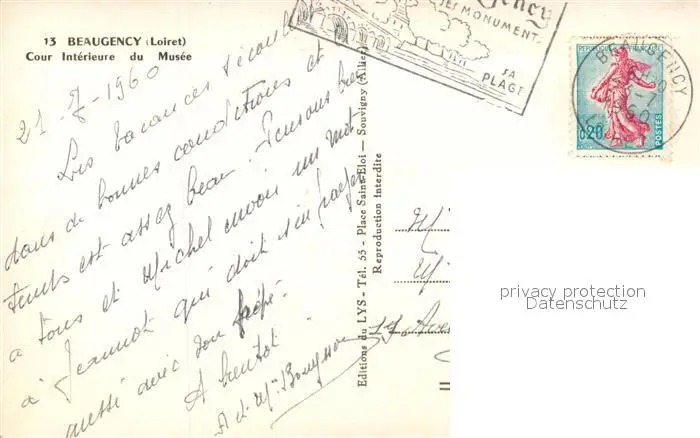 13 BEAUGENCY (Loiret)
Cour Intérieure du Musée
21-7-1960
Les vacances s'écoulent
dans de bonnes conditions et
temps est assez beau. Pensons bien
a tous et Michel envoie un mot
a Jeannot qui doit s'en
aussi avec son pépé.
A bientot
A et Mme
Editions du LYS - Tél. 55 - Place Saint-Eloi - Souvigny (Allier)
Reproduction interdite
gency
SES MONUMENTS
SA
PLAGE
BEAUGENCY
1960
0,20
POSTES
M
M
17 Ave
privacy protection
Datenschutz